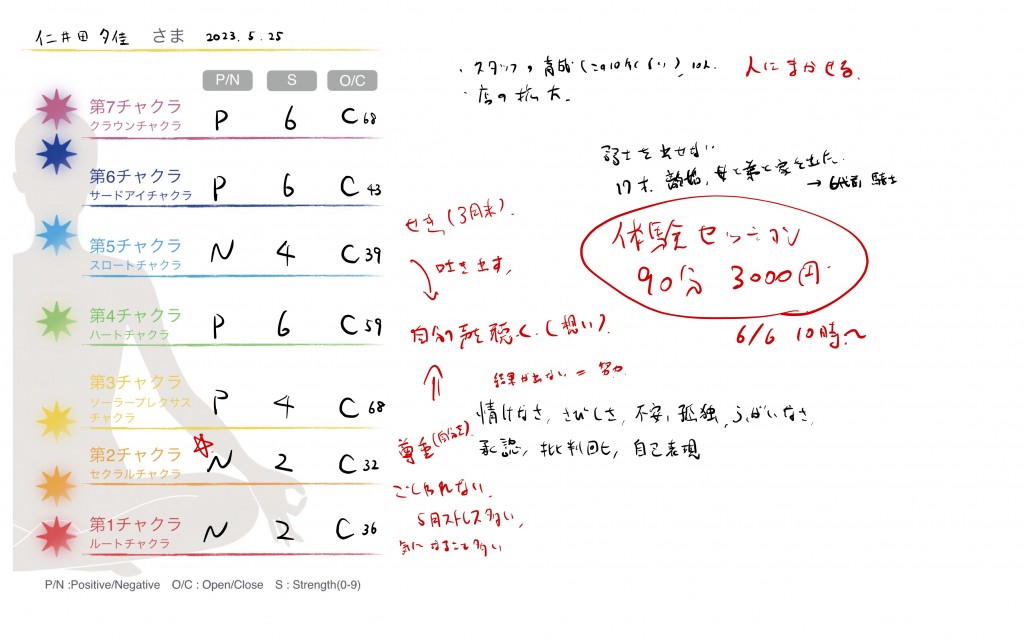 仁井田 夕佳 さま 2023.5.25
P/N S O/C
第7チャクラ
クラウンチャクラ
P 6 C 68
第6チャクラ
サードアイチャクラ
P 6 C 43
第5チャクラ
スロートチャクラ
N 4 C 39
第4チャクラ
ハートチャクラ
P 6 C 59
第3チャクラ
ソーラープレクサス
チャクラ
P 4 C 68
第2チャクラ
セクラルチャクラ
N 2 C 32
第1チャクラ
ルートチャクラ
N 2 C 36
P/N :Positive/Negative O/C : Open/Close S : Strength(0-9)
・スタッフの育成 10人 人にまかせる
・店の拡大
を出せない
17才、離婚、母と弟と家を出た。
→ 6代前 騎士
体験セッション
90分 3000円
6/6 10時〜
せき(3月末)
吐き出す
自分の声を聴く(想い)
結果が出ない = 努力
情けなさ、さびしさ、不安、孤独、ふがいなさ
尊重(自分を)
承認、批判回避、自己表現
5月ストレス多い
気になること多い